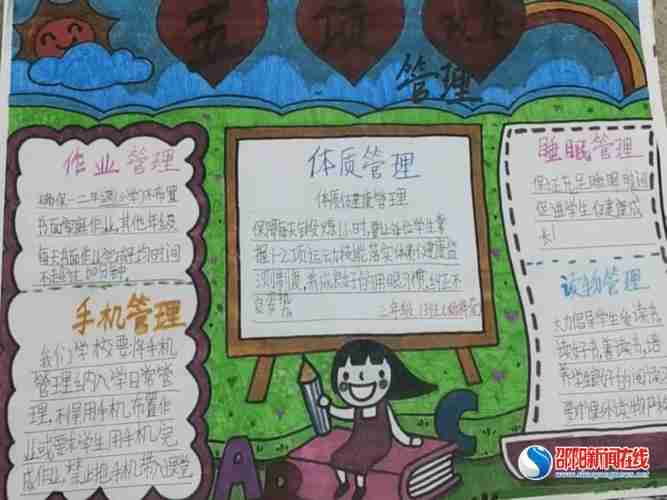 五项
管理
作业管理
确保一二年级(小学)不布置
书面家庭作业,其他年级
每天书面作业完成平均时间
不超过60分钟。
手机管理
我们学校要将手机
管理纳入学日常管
理,利用手机布置作
业或要求学生用手机完
成作业,禁止把手机带入课堂
体质管理
体质健康管理
保障每天校园锻炼1小时,
握1-2项运动技能落实体质健康监
测制度,养成良好的用眼习惯,纠正不
良姿势。
二年级
睡眠管理
保证充足睡眠时间
促进学生健康成
长!
读物管理
大力倡导学生爱读书
读好书,善读书,培
养学生良好的阅读习
A
B
C
邵阳新闻在线